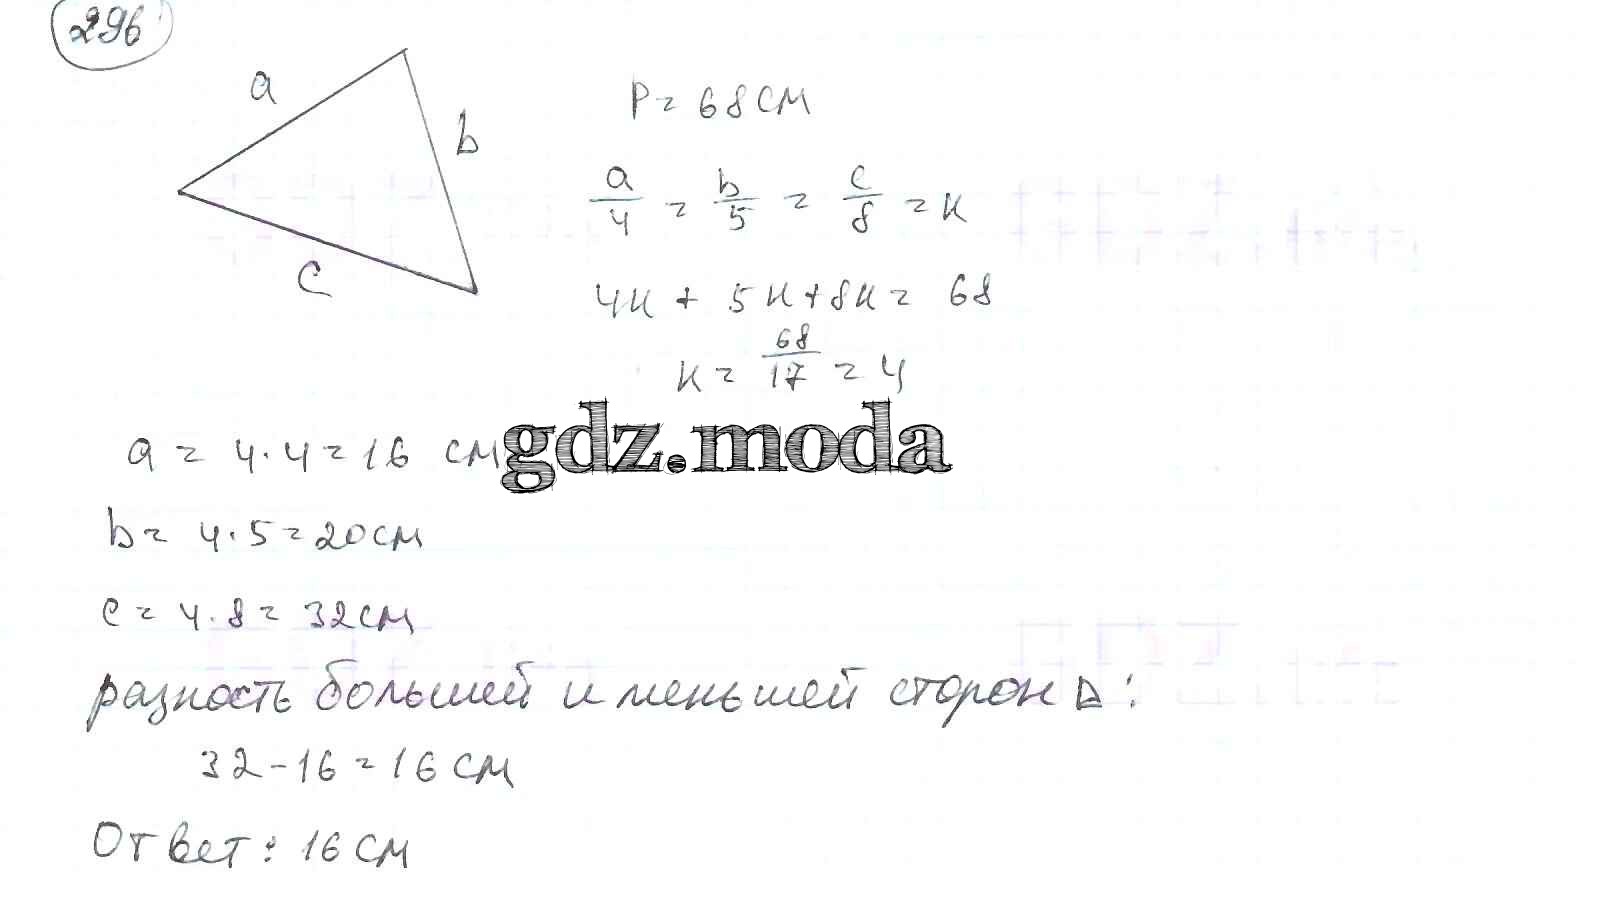 296
a
b
c
P = 68 см
a/4 = b/5 = c/8 = к
4к + 5к + 8к = 68
к = 68/17 = 4
gdz.moda
a = 4 · 4 = 16 см
b = 4 · 5 = 20 см
c = 4 · 8 = 32 см
разность большей и меньшей сторон Δ:
32 - 16 = 16 см
Ответ: 16 см